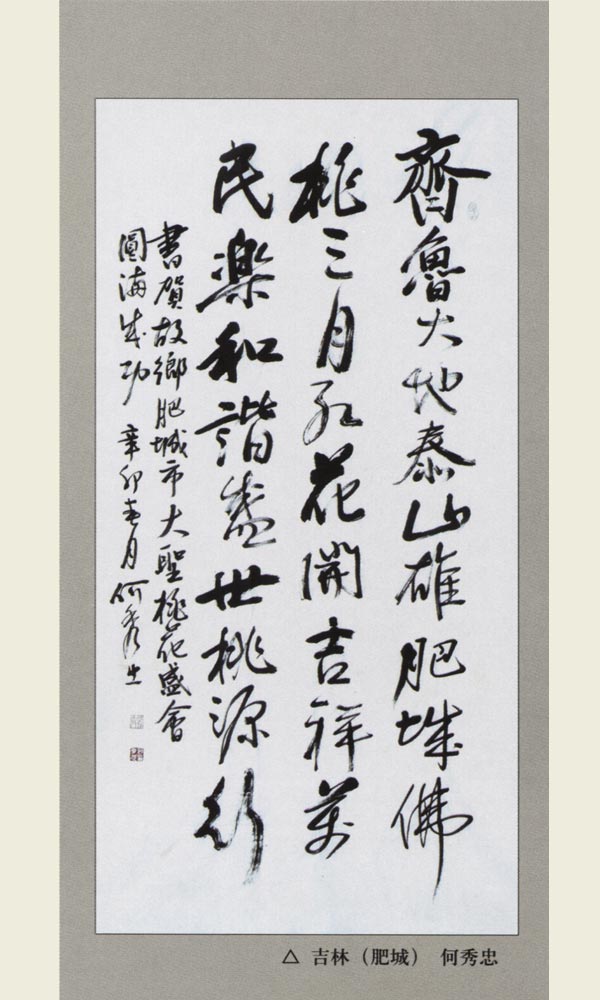 齊魯大地泰山雄肥城佛
桃三月紅花開吉祥萬
民樂和諧盛世桃源行
書賀故鄉肥城市大聖桃花盛會
圓滿成功 辛卯春月何秀忠
△ 吉林（肥城） 何秀忠